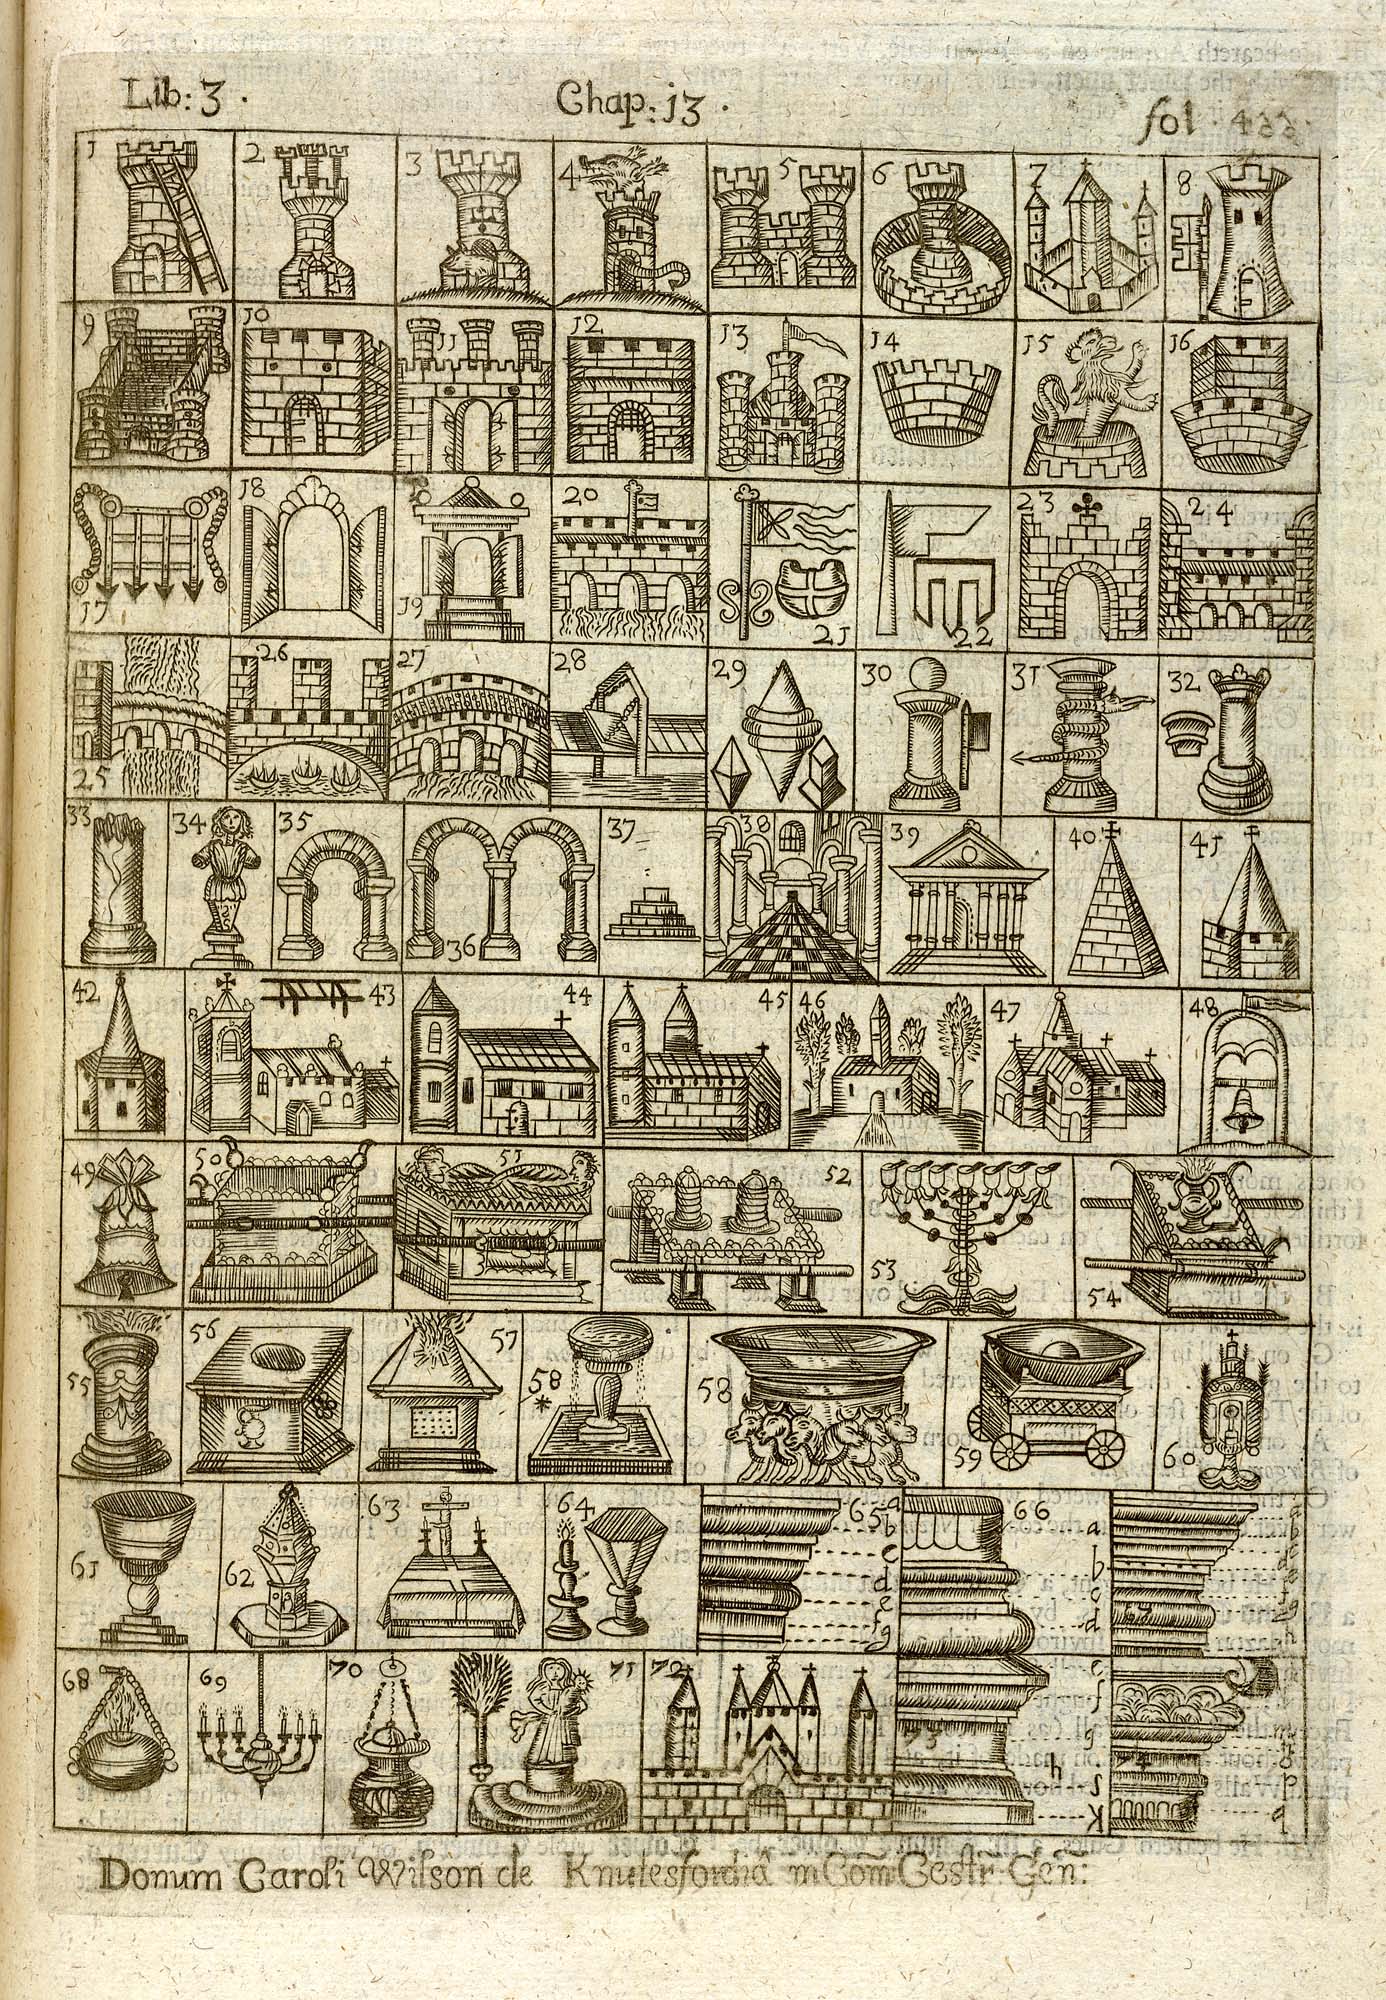 Lib: 3 .
Chap: 13 .
fol . 455 .
1 2 3 4 5 6 7 8
9 10 11 12 13 14 15 16
17 18 19 20 21 22 23 24
25 26 27 28 29 30 31 32
33 34 35 36 37 38 39 40 41
42 43 44 45 46 47 48
49 50 51 52 53 54
55 56 57 58 * 58 59 60
61 62 63 64 65 66
a
b
c
d
e
f
g
a
b
c
d
68 69 70 71 72 73
e
f
g
h
K
o
p
q
Donum Caroli Wilson de Knutesfordiâ in Com̄: Cestr: Gen̄: